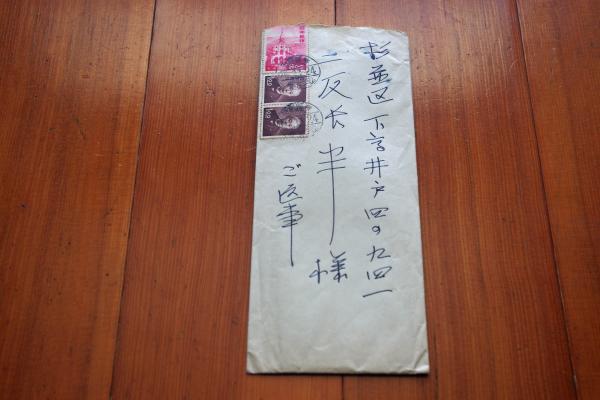 杉並区下高井戸四の九四一
三反长半様
ご返事